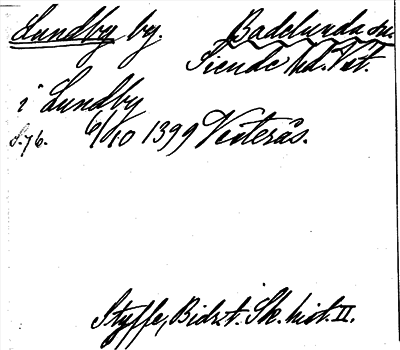 Lundby by. Badelunda sn.
Siende hd. Vstm.
i Lundby
S. 76. 6/10 1399 Västerås.
Styffe, Bidr. t. Sk. hist. II.